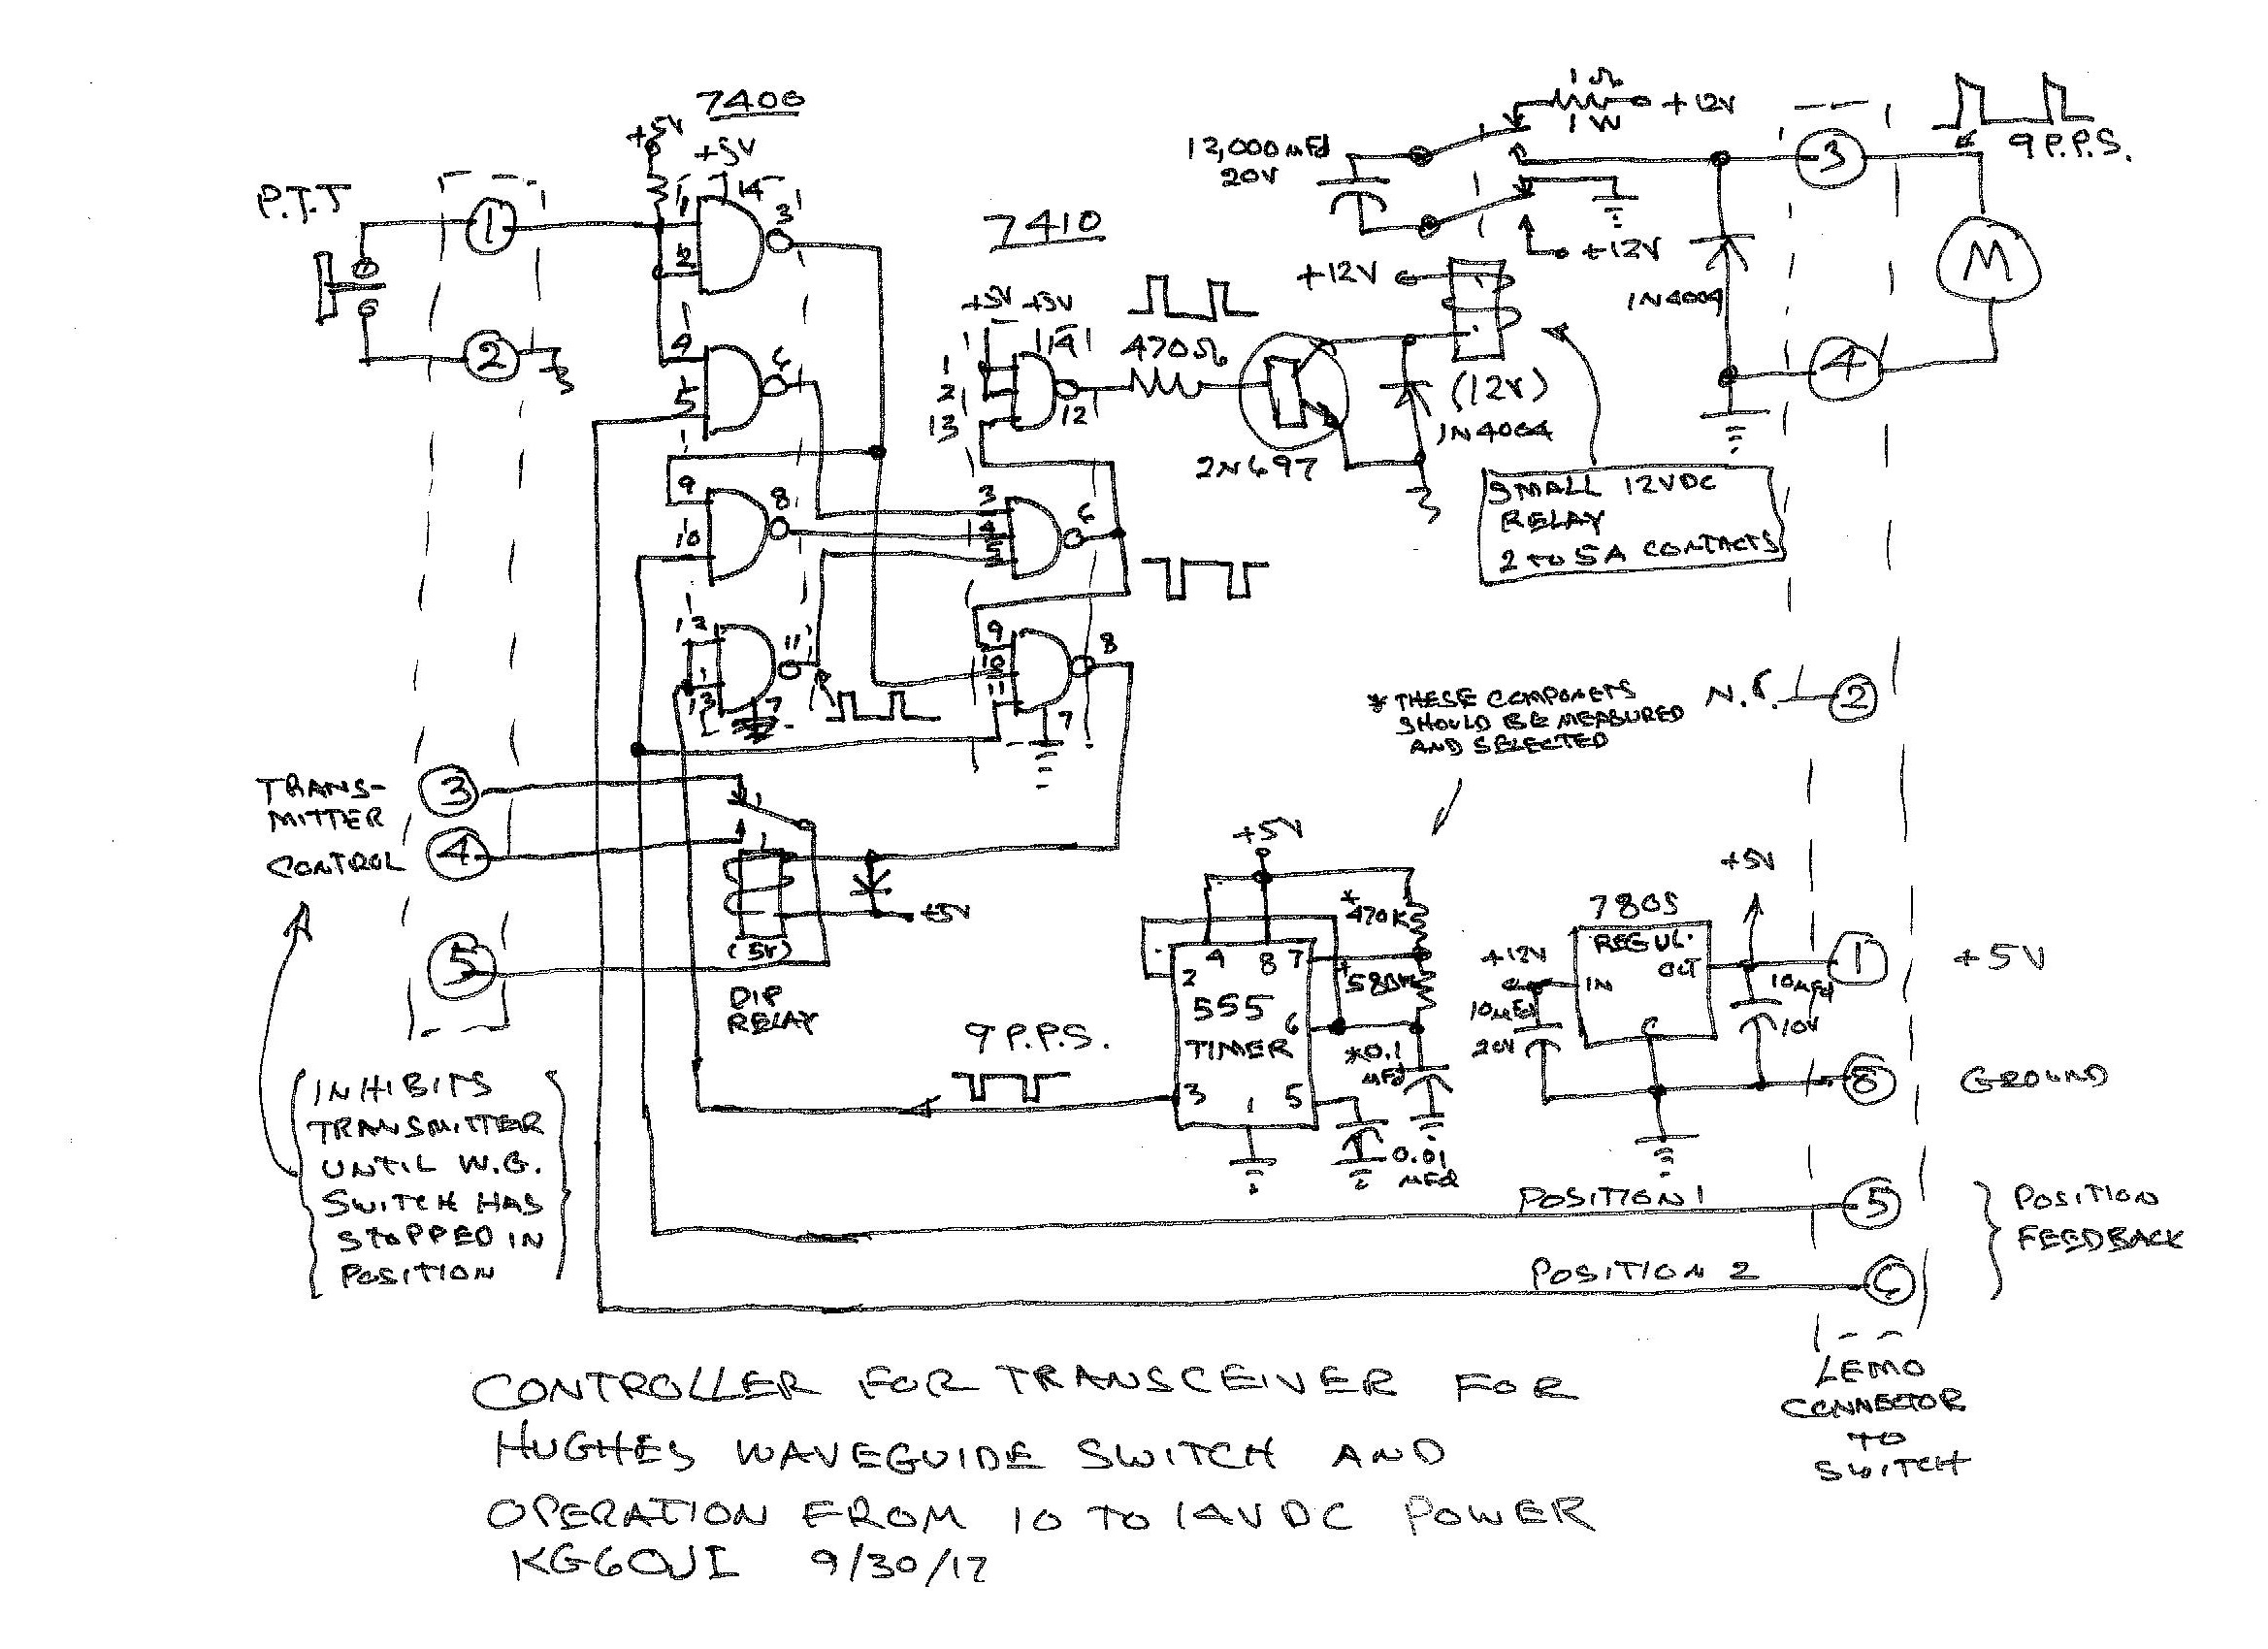 7400
+5V
+5V
P.T.T
1
2
1
2
14
3
4
5
6
9
10
8
12
13
11
7
7410
+5V +5V
1
2
13
14
12
3
4
5
6
9
10
11
8
7
470Ω
2N697
1N4004
+12V
(12V)
12,000 µFd
20V
1Ω
1W
+12V
+12V
1N4004
3
4
M
9 P.P.S.
SMALL 12VDC
RELAY
2 TO 5A CONTACTS
* THESE COMPONENTS
SHOULD BE MEASURED
AND SELECTED
N.C.
2
TRANS-
MITTER
CONTROL
3
4
5
+5V
(5V)
DIP
RELAY
INHIBITS
TRANSMITTER
UNTIL W.G.
SWITCH HAS
STOPPED IN
POSITION
9 P.P.S.
+5V
*470K
*580K
4 8 7
2
555
TIMER
6
3
5
1
*0.1
µFd
0.01
µFd
7805
REGUL.
IN
OUT
C
+12V
10µFd
20V
+5V
10µFd
10V
1
+5V
8
GROUND
POSITION 1
5
POSITION 2
6
POSITION
FEEDBACK
LEMO
CONNECTOR
TO
SWITCH
CONTROLLER FOR TRANSCEIVER FOR
HUGHES WAVEGUIDE SWITCH AND
OPERATION FROM 10 TO 14VDC POWER
KG6OJI 9/30/12